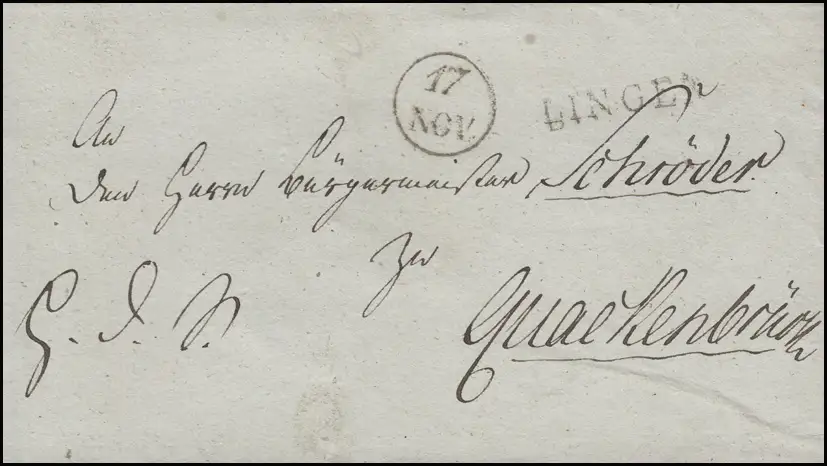 17
NOV.
LINGEN
An
den Herrn Bürgermeister Schröder
zu
H. D. S. Quackenbrück